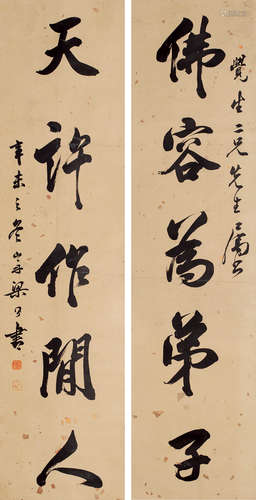 覺生二兄先生屬書
佛容為弟子
天許作閒人
辛未之冬